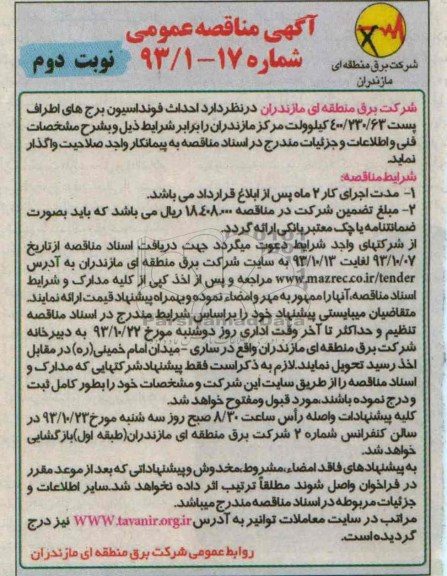 آگهی مناقصه عمومی
شماره ۱۷-۹۳/۱
نوبت دوم
شرکت برق منطقه ای
مازندران
شرکت برق منطقه ای مازندران درنظردارد احداث فونداسیون برج های اطراف
پست ۴۰۰/۲۳۰/۶۳ کیلوولت مرکز مازندران را برابر شرایط ذیل و بشرح مشخصات
فنی و اطلاعات و جزئیات مندرج در اسناد مناقصه به پیمانکار واجد صلاحیت واگذار
نماید.
شرایط مناقصه:
۱- مدت اجرای کار ۲ ماه پس از ابلاغ قرارداد می باشد.
۲- مبلغ تضمین شرکت در مناقصه ۱۸.۴۰۸.۰۰۰ ریال می باشد که باید بصورت
ضمانتنامه یا چک معتبر بانکی ارائه گردد.
از شرکتهای واجد شرایط دعوت میگردد جهت دریافت اسناد مناقصه ازتاریخ
۹۳/۱۰/۰۷ لغایت ۹۳/۱۰/۱۳ به سایت شرکت برق منطقه ای مازندران به آدرس
www.mazrec.co.ir/tender مراجعه و پس از اخذ کپی از کلیه مدارک و شرایط
اسناد مناقصه، آنها را ممهور به مهر و امضاء نموده و بهمراه پیشنهاد قیمت ارائه نمایند.
متقاضیان میبایستی پیشنهاد خود را براساس شرایط مندرج در اسناد مناقصه
تنظیم و حداکثر تا آخر وقت اداری روز دوشنبه مورخ ۹۳/۱۰/۲۲ به دبیرخانه
شرکت برق منطقه ای مازندران واقع در ساری - میدان امام خمینی(ره) در مقابل
اخذ رسید تحویل نمایند. لازم به ذکر است فقط پیشنهاد شرکتهایی که مدارک و
اسناد مناقصه را از طریق سایت این شرکت و مشخصات خود را بطور کامل ثبت
و درج نموده باشند، مورد قبول و مفتوح خواهد شد.
کلیه پیشنهادات واصله رأس ساعت ۸/۳۰ صبح روز سه شنبه مورخ ۹۳/۱۰/۲۳ در
سالن کنفرانس شماره ۲ شرکت برق منطقه ای مازندران(طبقه اول) بازگشایی
خواهد شد.
به پیشنهادهای فاقد امضاء، مشروط، مخدوش و پیشنهاداتی که بعد از موعد مقرر
در فراخوان واصل شوند مطلقاً ترتیب اثر داده نخواهد شد. سایر اطلاعات و
جزئیات مربوطه در اسناد مناقصه مندرج میباشد.
مراتب در سایت معاملات توانیر به آدرس WWW.tavanir.org.ir نیز درج
گردیده است.
روابط عمومی شرکت برق منطقه ای مازندران